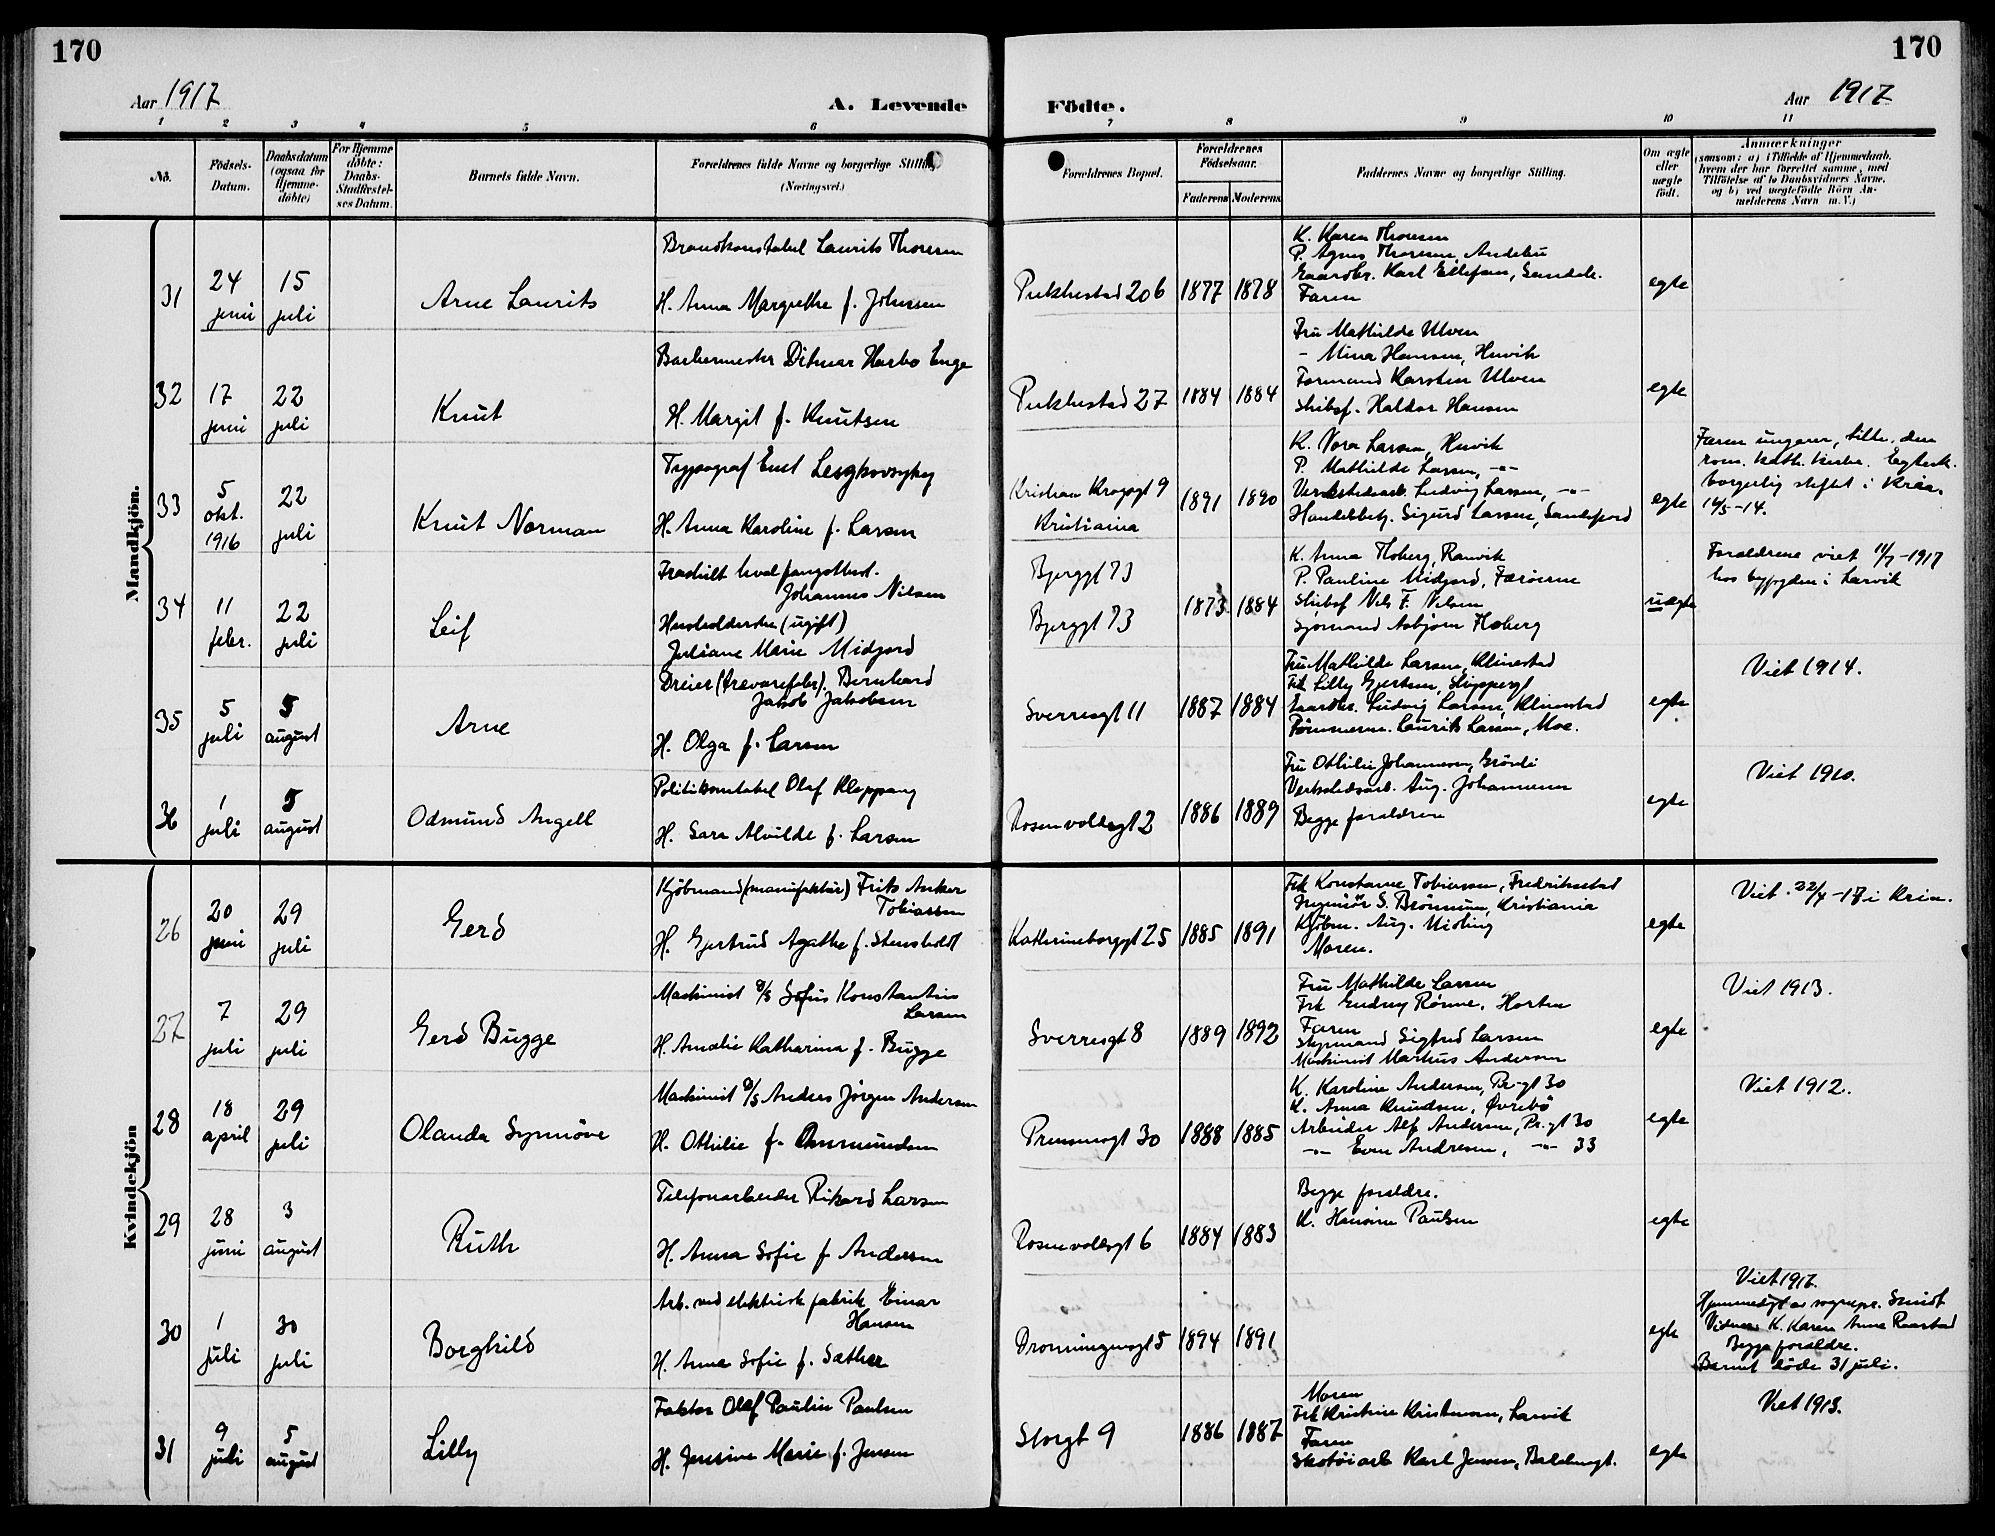 170
170
Aar 1917
A. Levende
Födte.
Aar 1917
1
2
3
4
5
6
7
8
9
10
11
No.
Födsels-
Datum.
Daabsdatum
(ogsaa for
Hjemme-
döbte)
For Hjemme
döbte:
Daabs-
Stadfæstel-
ses Datum.
Barnets fulde Navn.
Forældrenes fulde Navne og borgerlige Stilling
(Næringsvei.)
Forældrenes Bopæl.
Forældrenes
Födselsaar.
Faderens
Moderens
Faddernes Navne og borgerlige Stilling.
Om ægte
eller
uægte
født.
Anmærkninger
(saasom: a) i Tilfælde af Hjemmedaab,
hvem der har forrettet samme, med
Tilföielse af to Daabsvidners Navne,
og b) ved uægtefödte Börn An-
melderens Navn m. V.)
Mandkjön.
31
24
juni
15
juli
Arne Laurits
Brandkonstabel Laurits Thoresen
H. Anna Margrethe f. Johnsen
Pukkestad 206
1877
1878
K. Karen Thoresen
P. Agnes Thoresen, Andebu
Gaardbr. Karl Ellefsen, Sandeh.
Faren
egte
32
17
juni
22
juli
Knut
Barbermester Ditmar Harbo Enge
H. Margit f. Knutsen
Pukkestad 27
1884
1884
Fru Mathilde Ulven
- Mina Hansen, Huvik
Formand Karsten Ulven
Skibsf. Haldor Hansen
egte
33
5
okt.
1916
22
juli
Knut Norman
Typograf Emil
H. Anna Karoline f. Larsen
Kristian Krogsgt 9
Kristiania
1891
1890
K. Nora Larsen, Huvik
P. Mathilde Larsen, -"-
Verkstedsarb. Ludvig Larsen, -"-
Handelsbetj. Sigurd Larsen, Sandefjord
egte
Faren ungarer, tilh. den
rom. kath. kirke. Egtesk.
borgerlig stiftet i Kräa.
16/5-14.
34
11
febr.
22
juli
Leif
Fraskilt hvalfangstbest.
Johannes Nilsen
Husholderske (ugift)
Juliane Marie Midjord
Bjerggt 73
Bjerggt 73
1873
1884
K. Anna Hoberg, Ranvik
P. Pauline Midjord, Færöerne
Skibsf Nils F. Nilsen
Sjömand Asbjörn Hoberg
uægte
Forældrene viet 11/7-1917
hos byfogden i Larvik
35
5
juli
5
august
Arne
Dreier (trævarefabr). Bernhard
Jakob Jakobsen
H. Olga f. Larsen
Sverresgt 11
1887
1884
Fru Mathilde Larsen, Klinestad
Frk Lilly Gjertsen, Skippergt
Gaardbr. Ludvig Larsen, Klinestad
Tömmerm. Laurits Larsen, Moe.
egte
Viet 1914.
36
1
juli
5
august
Odmund Angell
Politikonstabel Olaf Kleppang
H. Sara Alvilde f. Larsen
Rosenvoldsgt 2
1886
1889
Fru Othilie Johannesen, Grönli
Verkstedsarb. Aug. Johannesen
Begge forældrene
egte
Viet 1910.
Kvindekjön
26
20
juni
29
juli
Gerd
Kjöbmand (manufaktur) Frits Anker
Tobiassen
H. Gjertrud Agathe f. Stensholdt
Kathrineborggt 25
1885
1891
Frk Konstanse Tobiassen, Fredriksstad
Ingeniör S. Brönnum, Kristiania
Kjöbm. Aug. Midling
Moren.
egte
Viet 22/4-17 i Kria.
27
7
juli
29
juli
Gerd Bugge
Maskinist d/s Sofus Konstantin
Larsen
H. Amalie Katharina f. Bugge
Sverresgt 8
1889
1892
Fru Mathilde Larsen
Frk Gudny Rönne, Horten
Faren
Styrmand Sigfred Larsen
Maskinist Markus Andersen
egte
Viet 1913.
28
18
april
29
juli
Olanda Synnöve
Maskinist d/s Anders Jörgen Andersen
H. Othilie f. Aanmundsen
Prinsensgt 30
1888
1885
K. Karoline Andersen, Pr-gt 30
K. Anna Knudsen, Øvrebö
Arbeider Alf Andersen, Pr.gt 30
-"- Even Andresen, -"- 33
egte
Viet 1912.
29
28
juni
3
august
Ruth
Telefonarbeider Rikard Larsen
H. Anna Sofie f Andersen
Rosenvoldsgt 6
1884
1883
Begge forældre.
K. Hansine Paulsen
egte
30
1
juli
30
juli
Borghild
Arb. ved elektrisk fabrik Einar
Hansen
H. Anna Sofie f. Sæther
Dronningensgt 5
1894
1891
egte
Viet 1917.
Hjemmedöpt av sognepr. Smidt
Vidner: K. Karen Anne Raastad
Begge forældre.
Barnet döde 31 juli.
31
9
juli
5
august
Lilly
Faktor Olaf Paulin Paulsen
H. Jensine Marie f. Jensen
Storgt 9
1886
1887
Moren
Frk Kristine Kristensen, Larvik
Faren
Skotöiarb Karl Jensen, Baldersgt.
egte
Viet 1913.